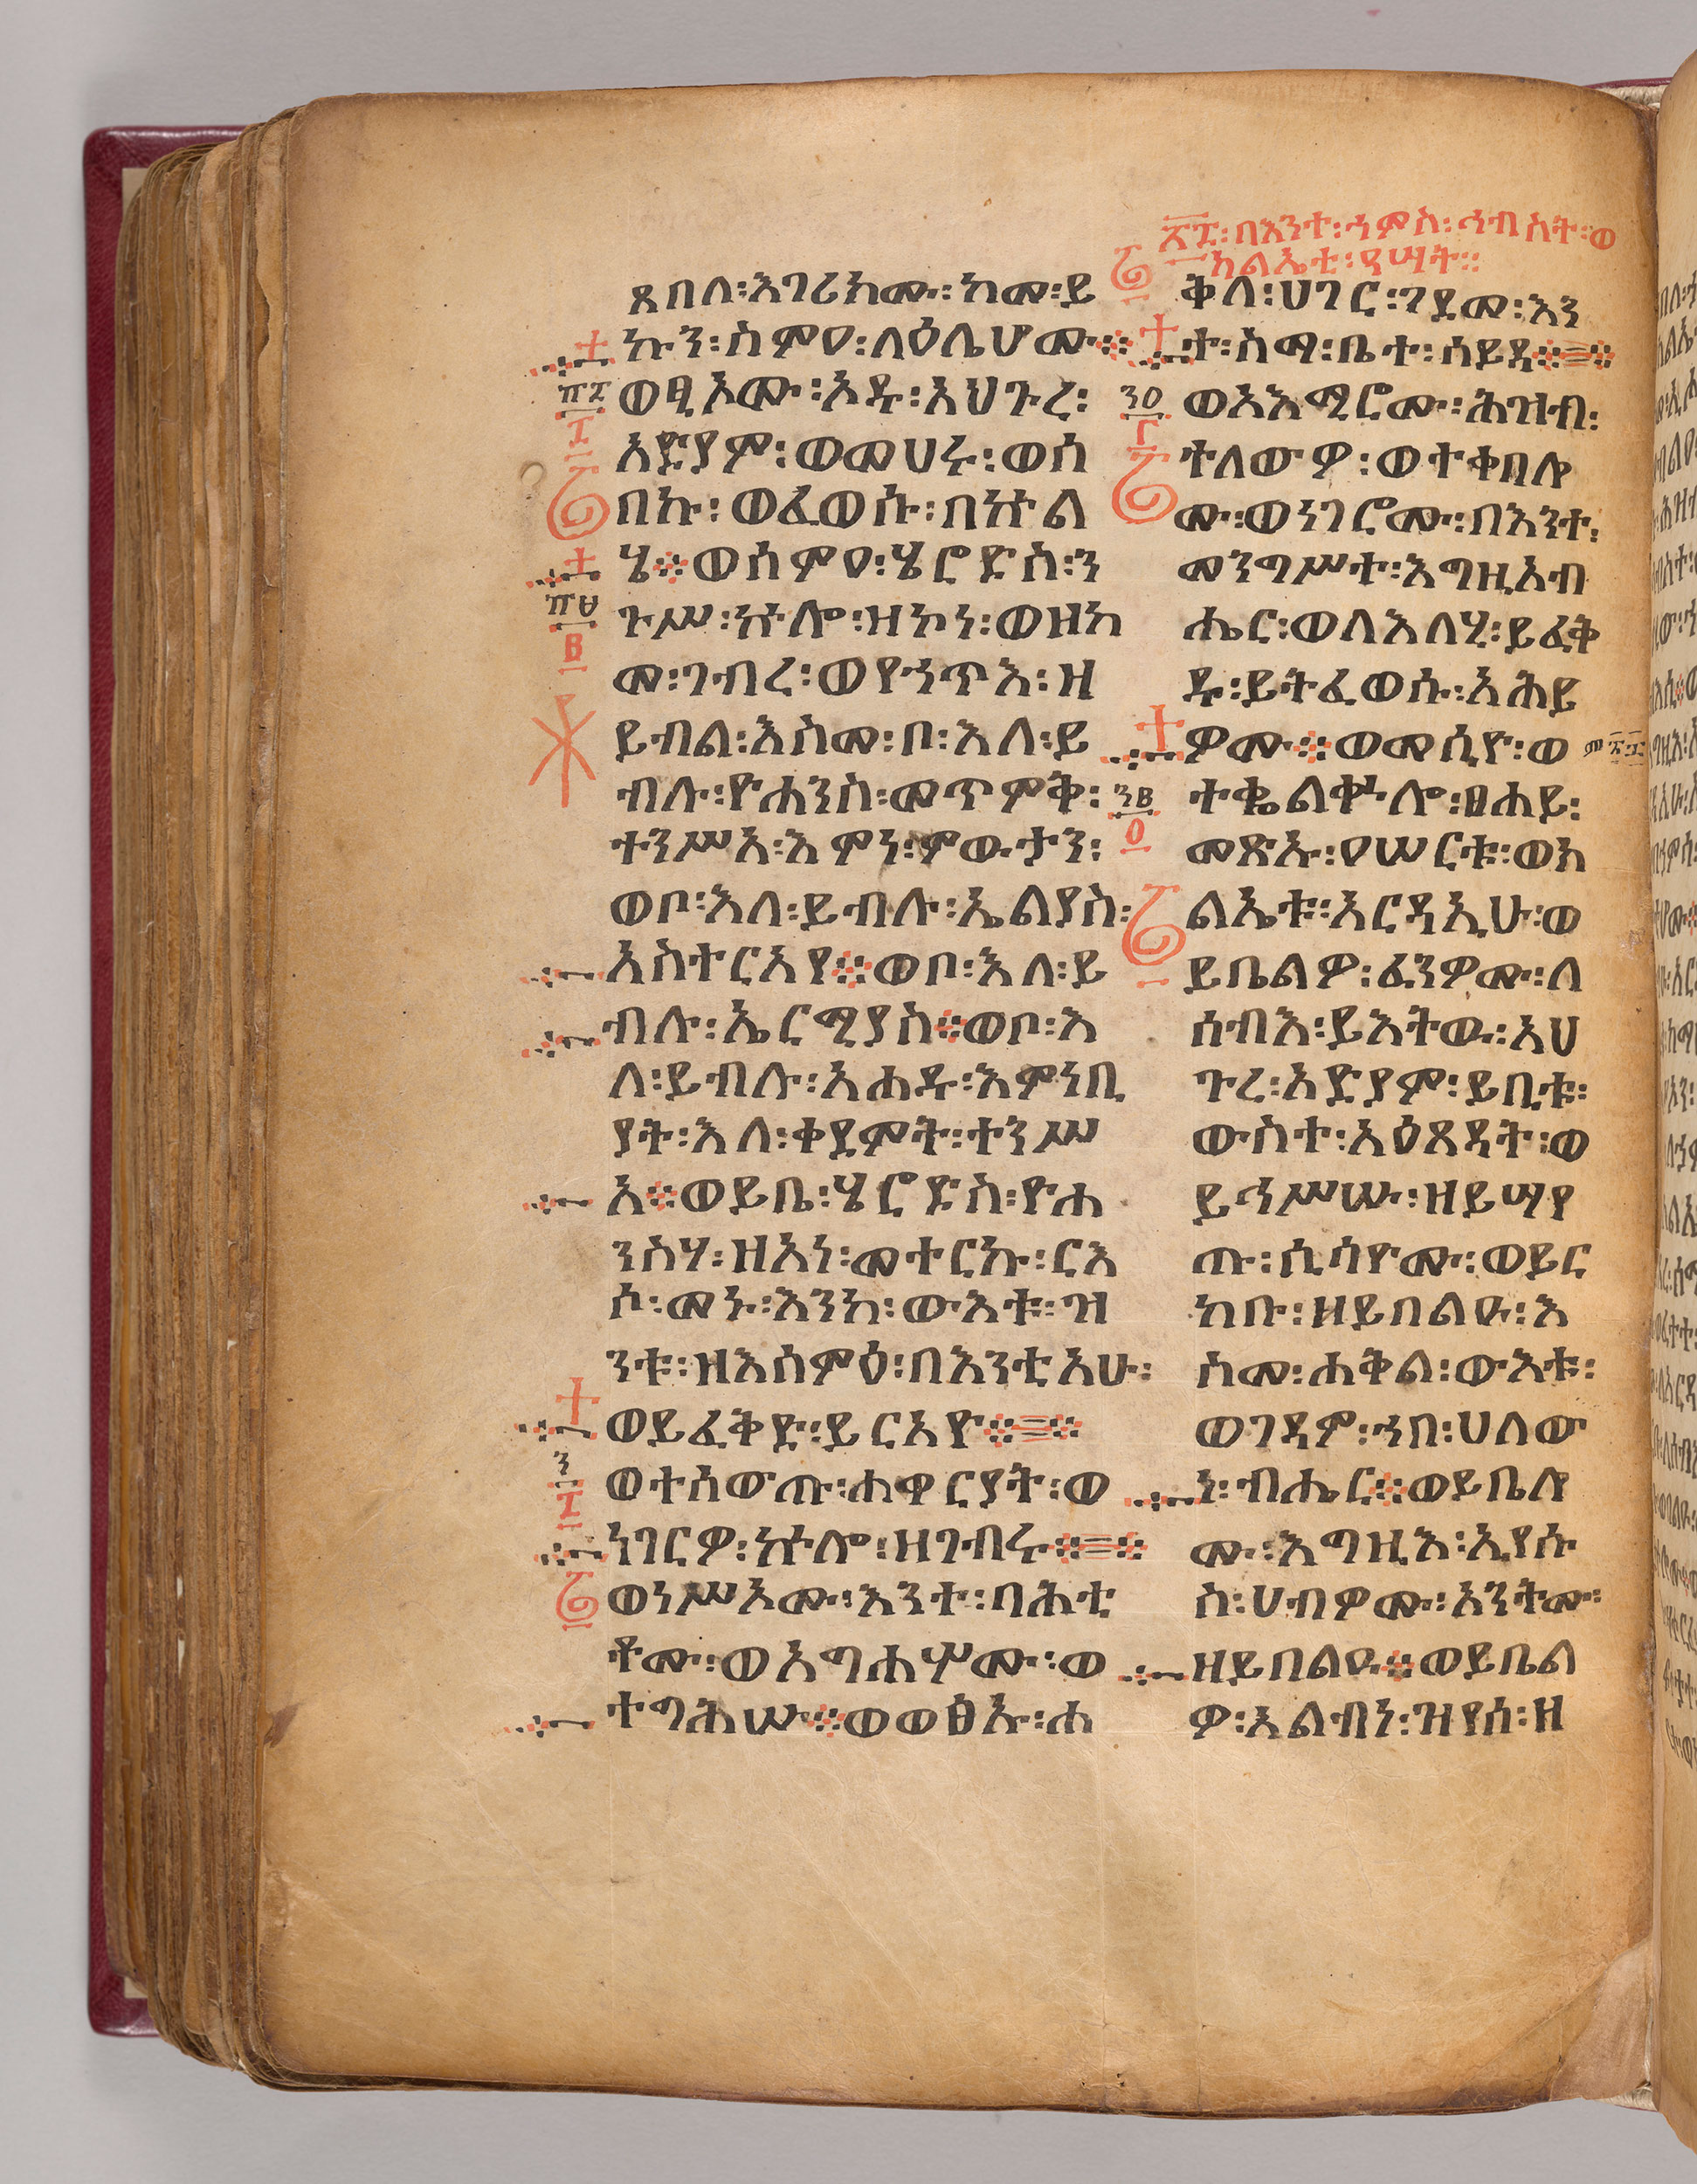 ጸበለ፡እገሪክሙ፡ከመ፡ይ
ኩን፡ስምዐ፡ለዕሌሆሙ፨
ወፂኦሙ፡ኦዱ፡አህጉረ፡
አድያም፡ወመሀሩ፡ወሰ
በኩ፡ወፈወሱ፡በኵል
ሄ፨ወሰምዐ፡ሄሮድስ፡ን
ጉሥ፡ኵሎ፡ዘኮነ፡ወዘከ
መ፡ገብረ፡ወየኀጥእ፡ዘ
ይብል፡እስመ፡ቦ፡እለ፡ይ
ብሉ፡ዮሐንስ፡መጥምቅ፡
ተንሥአ፡እምነ፡ምውታን፡
ወቦ፡እለ፡ይብሉ፡ኤልያስ፡
አስተርአየ፨ወቦ፡እለ፡ይ
ብሉ፡ኤርሚያስ፨ወቦ፡እ
ለ፡ይብሉ፡አሐዱ፡እምነቢ
ያት፡እለ፡ቀደምት፡ተንሥ
አ፨ወይቤ፡ሄሮድስ፡ዮሐ
ንስሃ፡ዘአነ፡መተርኩ፡ርእ
ሶ፡መኑ፡እንከ፡ውእቱ፡ዝ
ንቱ፡ዘእሰምዕ፡በእንቲአሁ፡
ወይፈቅድ፡ይርአዮ፨
ወተሰውጡ፡ሐዋርያት፡ወ
ነገርዎ፡ኵሎ፡ዘገብሩ፨
ወነሥኦሙ፡እንተ፡ባሕቲ
ቶሙ፡ወአግሐሦሙ፡ወ
ተግሕሡ፨ወወፅኡ፡ሐ
፳፯፡በእንተ፡ኀምስ፡ኀብስት፡ወ
ክልኤቲ፡ዓሣት።
ቅለ፡ሀገር፡ገደመ፡እን
ተ፡ስማ፡ቤተ፡ሰይዳ፨
ወአእሚሮሙ፡ሕዝብ፡
ተለውዎ፡ወተቀበሎ
ሙ፡ወነገሮሙ፡በእንተ፡
መንግሥተ፡እግዚአብ
ሔር፡ወለእለሂ፡ይፈቅ
ዱ፡ይትፈወሱ፡አሕይ
ዎሙ፨ወመሲዮ፡ወ
ተቈልቊሎ፡ፀሐይ፡
መጽኡ፡ዐሠርቱ፡ወክ
ልኤቱ፡አርዳኢሁ፡ወ
ይቤልዎ፡ፈንዎሙ፡ለ
ሰብእ፡ይእትዉ፡አህ
ጉረ፡አድያም፡ይቢቱ፡
ውስተ፡አዕጸዳት፡ወ
ይኅሥሡ፡ዘይሣየ
ጡ፡ሲሳዮሙ፡ወይር
ከቡ፡ዘይበልዑ፡እ
ስመ፡ሐቅል፡ውእቱ፡
ወገዳም፡ኀበ፡ሀለው
ነ፡ብሔር፨ወይቤሎ
ሙ፡እግዚእ፡ኢየሱ
ስ፡ሀብዎሙ፡አንትሙ፡
ዘይበልዑ፨ወይቤል
ዎ፡አልብነ፡ዝየሰ፡ዘ